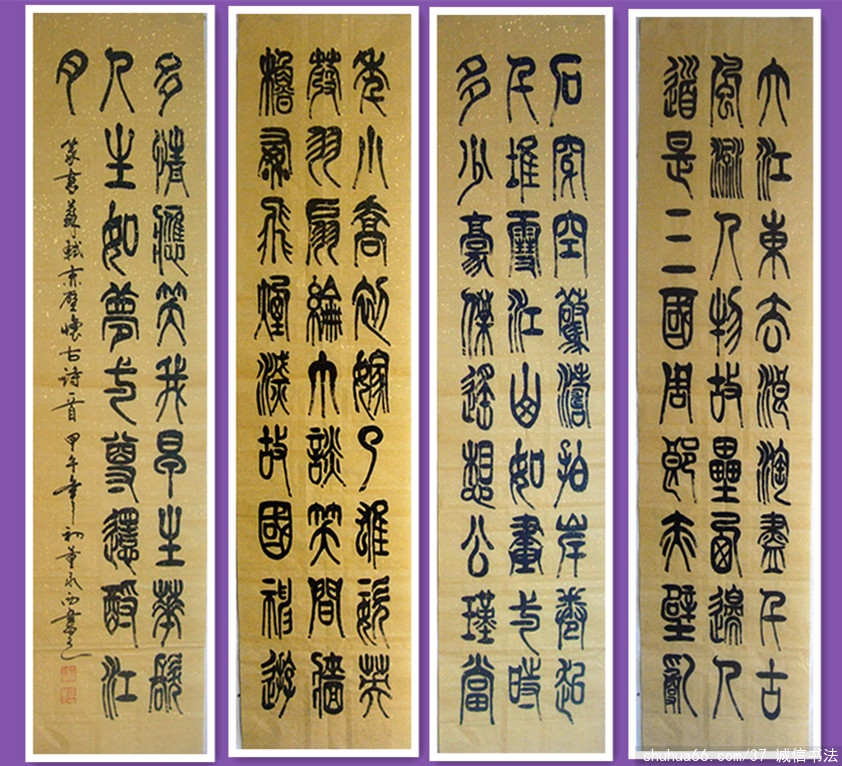 大江東去浪淘盡千古
風流人物故壘西邊人
道是三國周郎赤壁亂
石穿空驚濤拍岸卷起
千堆雪江山如畫一時
多少豪傑遙想公瑾當
年小喬初嫁了雄姿英
發羽扇綸巾談笑間檣
櫓灰飛煙滅故國神遊
多情應笑我早生華髮
人生如夢一尊還酹江
月
篆書蘇軾赤壁懷古詩一首 甲午年初董永西書之
shuhua66.com/37 诚信书法